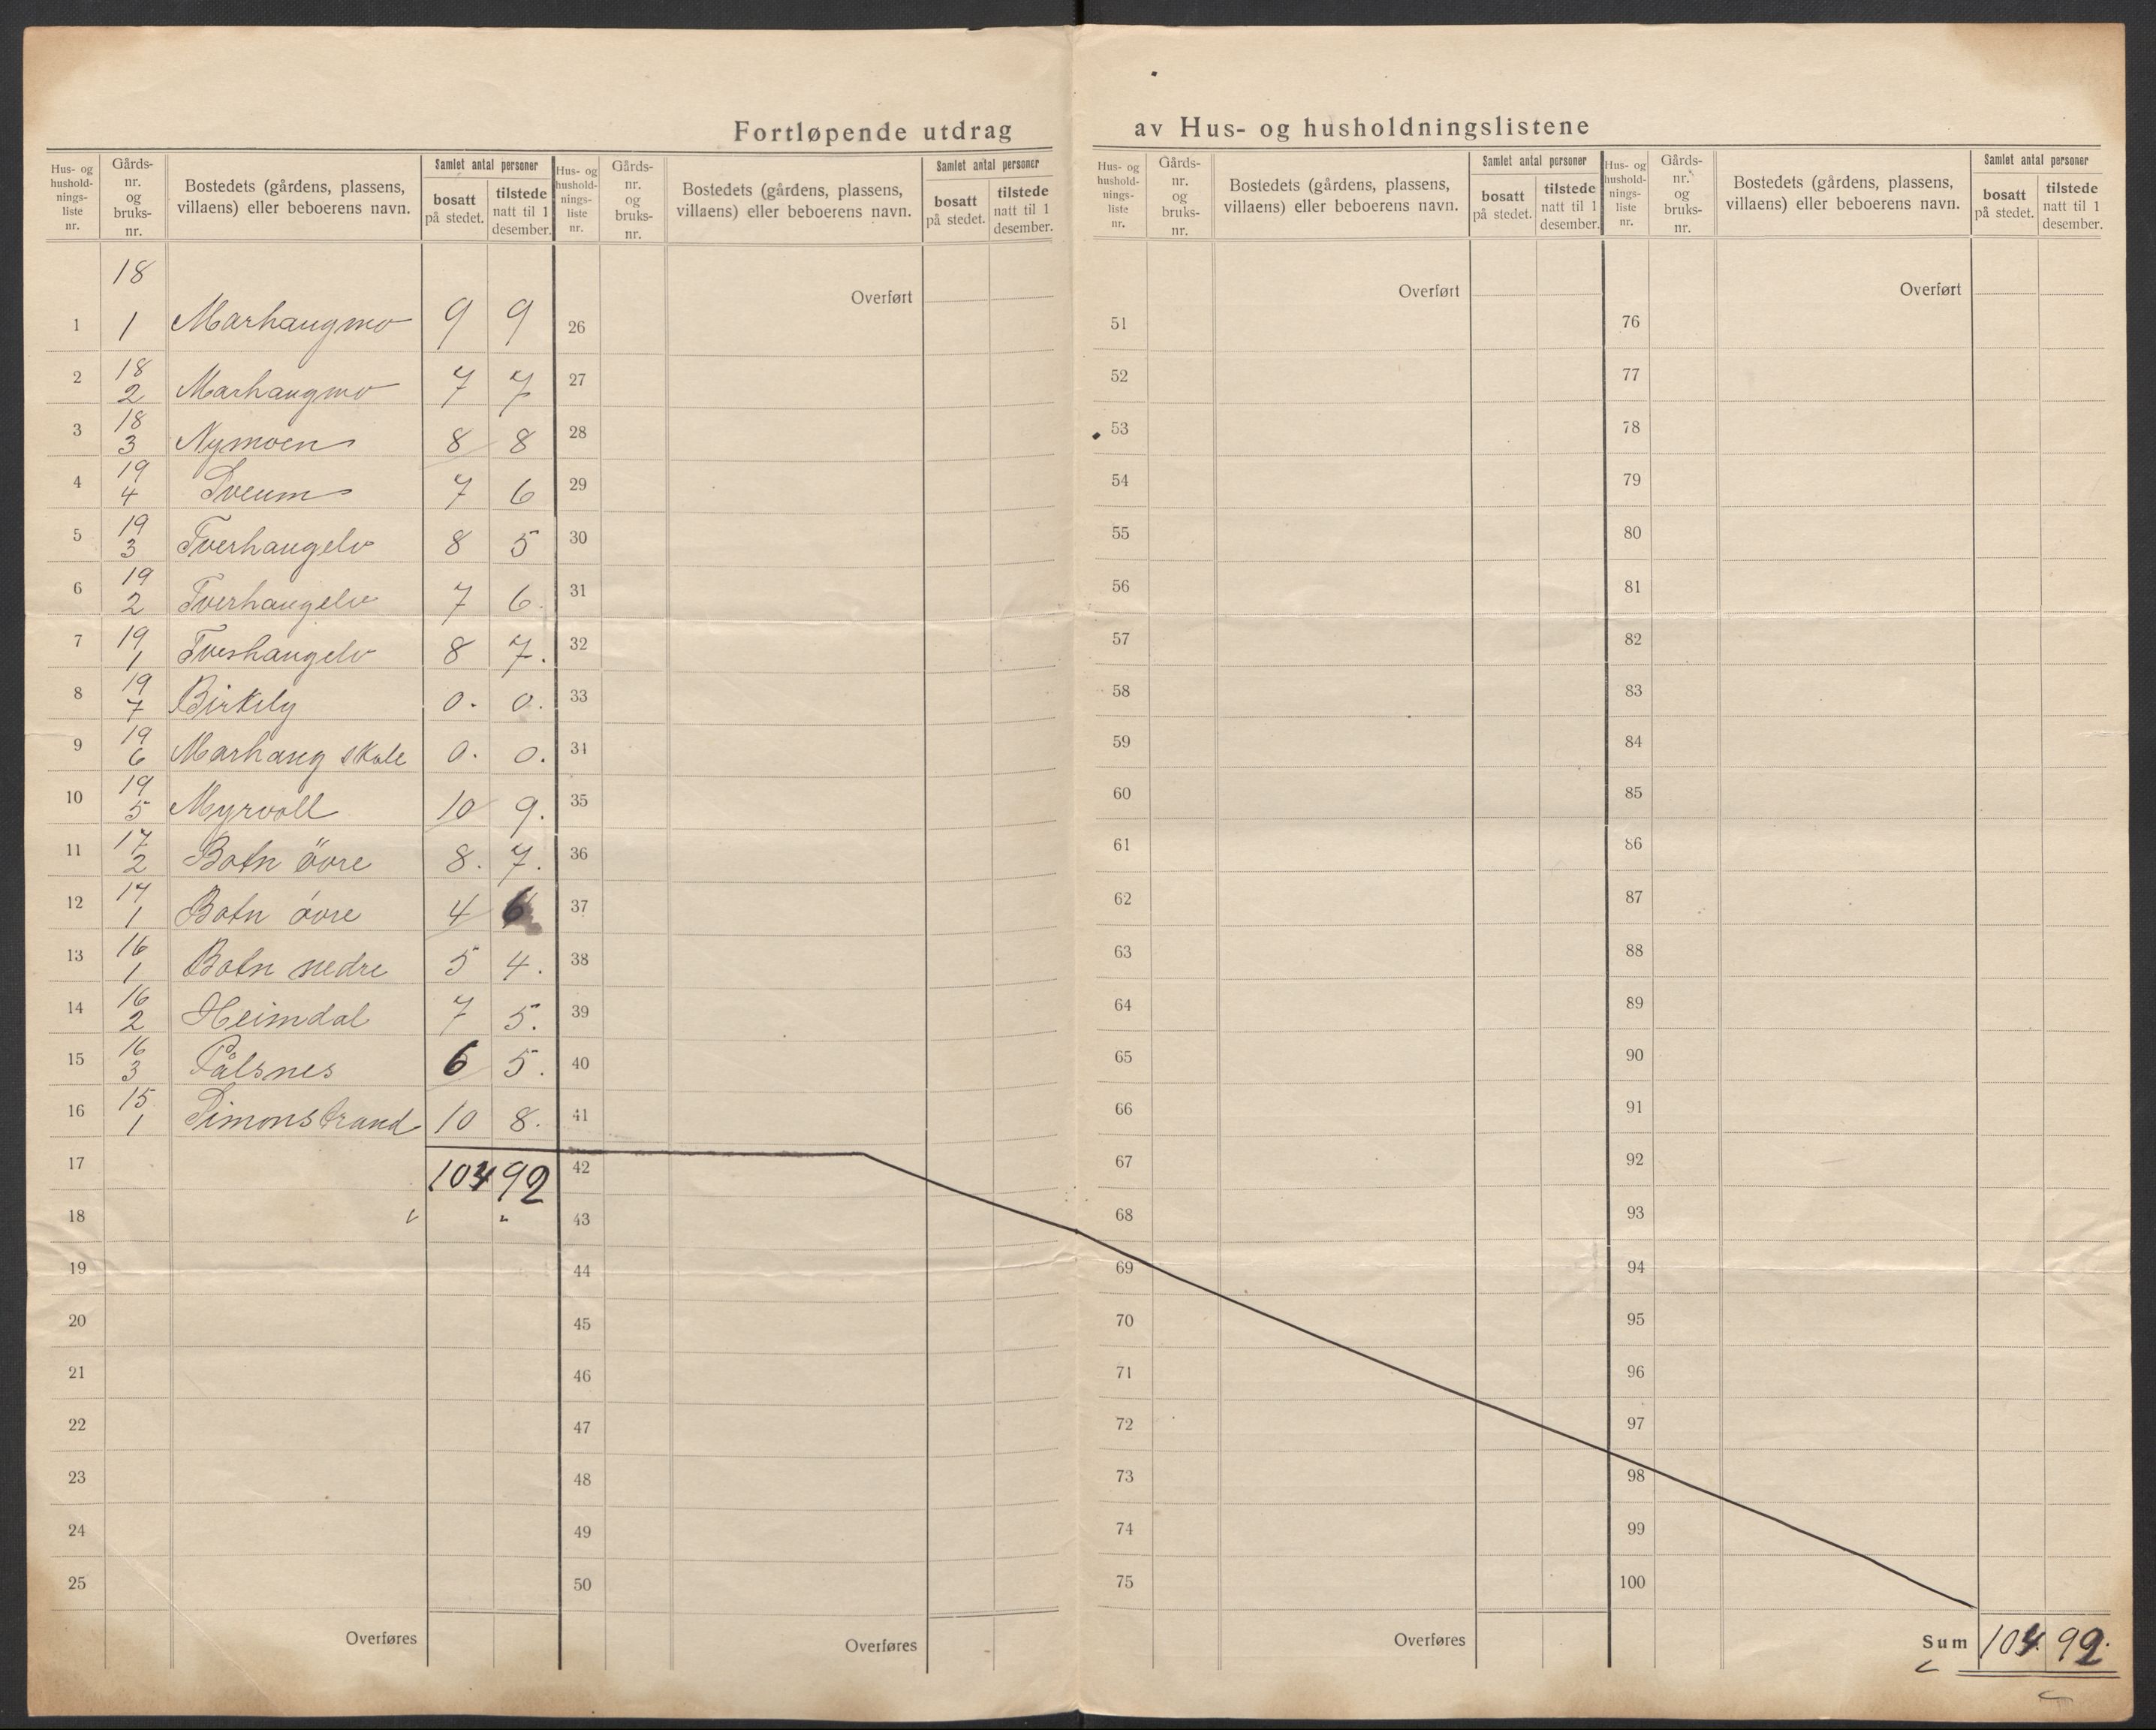 Fortløpende utdrag av Hus- og husholdningslistene
Hus- og hushold- nings- liste nr. | Gårds- nr. og bruks- nr. | Bostedets (gårdens, plassens, villaens) eller beboerens navn. | Samlet antal personer | bosatt på stedet. | tilstede natt til 1 desember.
Hus- og hushold- nings- liste nr. | Gårds- nr. og bruks- nr. | Bostedets (gårdens, plassens, villaens) eller beboerens navn. | Samlet antal personer | bosatt på stedet. | tilstede natt til 1 desember.
Hus- og hushold- nings- liste nr. | Gårds- nr. og bruks- nr. | Bostedets (gårdens, plassens, villaens) eller beboerens navn. | Samlet antal personer | bosatt på stedet. | tilstede natt til 1 desember.
Hus- og hushold- nings- liste nr. | Gårds- nr. og bruks- nr. | Bostedets (gårdens, plassens, villaens) eller beboerens navn. | Samlet antal personer | bosatt på stedet. | tilstede natt til 1 desember.
1 18 1 Marhaugmo 9 9
2 18 2 Marhaugmo 7 7
3 18 3 Nymoen 8 8
4 19 4 Sveum 7 6
5 19 3 Tverhaugelv 8 5
6 19 2 Tverhaugelv 7 6.
7 19 1 Tverhaugelv 8 7.
8 19 7 Birkely 0. 0.
9 19 6 Marhaug skole 0. 0.
10 19 5 Myrvoll 10 9.
11 17 2 Botn övre 8. 7.
12 17 1 Botn óvre 4 6
13 16 1 Botn nedre 5 4.
14 16 2 Heimdal 7 5.
15 16 3 Pålsnes 6 5.
16 15 1 Simonstrand 10 8.
17 104 92
18
19
20
21
22
23
24
25
Overføres
Overført
26
27
28
29
30
31
32
33
34
35
36
37
38
39
40
41
42
43
44
45
46
47
48
49
50
Overføres
Overført
51
52
53
54
55
56
57
58
59
60
61
62
63
64
65
66
67
68
69
70
71
72
73
74
75
Overføres
Overført
76
77
78
79
80
81
82
83
84
85
86
87
88
89
90
91
92
93
94
95
96
97
98
99
100
Sum 104. 92.